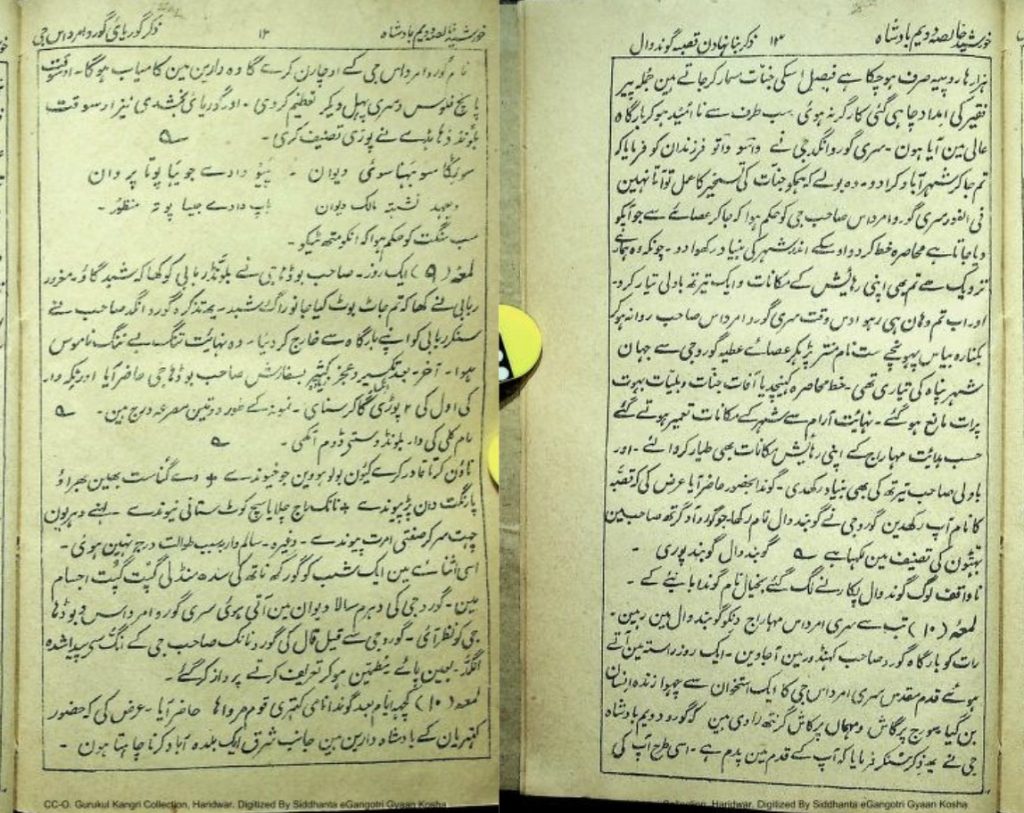 خورشید خالصہ دویم بادشاہ
۱۲
ذکر گوریائی گورو امرداس جی
نام گورو امرداس جی کے اوچارن کرے گا وہ دارین مین کامیاب ہوگا۔ اوسوقت
پانچ فلوس وسری پہل دیکر تعظیم کردی۔ اور گوریائی بخشدی نیز اوسوقت
بلونڈ نے پوڑی تصنیف کری۔
سو ٹکا سو بہنا سوئی دیوان۔ پیو دادے جویہا پوتا پروان
سب سنگت کو حکم ہوا کہ انکو متھ ٹیکو۔
لمعہ (۹) ایک روز۔ صاحب بوڈھا جی نے بلونڈ ربابی کو کہا کہ شبد گاؤ۔ مغرور
ربابی نے کہا کہ تم جاٹ بوٹ کیا جانو راگ شبد۔ یہ تذکرہ گورو انگد صاحب نے
سنکر ربابی کو اپنے بارگاہ سے خارج کردیا۔ وہ نہائیت تنگ بے ننگ ناموس
ہوا۔ آخر۔ بسفارش صاحب بوڈھا جی حاضر آیا اور ٹکہ وار
کی اول کی ۲ پوڑی گاکر سنائی۔ نمونہ کے طور دو تین مصرعہ درج ہین۔
رام کلی کی وار بلونڈ وستی ڈوم آکھی۔
ناؤن کرتا قادر کرے کیون بول ہووین جوخیوندے + دے گناست بھین بھراؤ
پارنگت دان پڑیوندے + نانک راج چلایا سچ کوٹ ستانی نیوندے لہنے دھریون
چھت سر کر صفتی امرت پیوندے۔ وغیرہ۔ سالم وار بسبب طوالت درج نہین ہوئی۔
اسی اثنائے مین ایک شب کو گورکھ ناتھ کی سدھ منڈلی گپت گپت اجسام
مین۔ گورو جی کی دھرم سالا دیوان مین آتی ہوئی سری گورو امرداس وبوڈھا
جی کو نظر آئی۔ گورو جی سے قیل قال کی گورو نانک صاحب جی کے انگ سے پیدا شدہ
انگد۔ یعین پائے مطمئن ہوکر تعریف کرتے پرواز کرگئے۔
لمعہ (۱۰) کچھ ایام بعد گوندا نامی کھتری قوم مرواہا حاضر آیا۔ عرض کی کہ حضور
کھتریان کے بادشاہ دارین مین جانب شرق ایک بلدہ آباد کرنا چاہتا ہون۔
خورشید خالصہ دویم بادشاہ
۱۳
ذکر بنا نہادن قصبہ گوندوال
ہزارہا روپیہ صرف ہوچکا ہے فیصل اسکی جنات مسمار کرجاتے ہین جملہ پیر
فقیر کی امداد چاہی گئی کارگر نہ ہوئی۔ سب طرف سے نا امید ہوکر بارگاہ
عالی مین آیا ہون۔ سری گورو انگد جی نے داسو داتو فرزندان کو فرمایا کہ
تم جاکر شہر آباد کرادو۔ وہ بولے کہ ہمکو جنات کی تسخیر کا عمل توانا نہین
فی الفور سری گورو امرداس صاحب جی کو حکم ہوا کہ جاکر عصائے سے جو آپکو
دیا جاتا ہے محاصرہ خط کردو اوسکے اندر شہر کی بنیاد رکھوادو۔ چونکہ وہ جگہ
نزدیک ہے تم بھی اپنی رہائیش کے مکانات و ایک تیرتھ باولی تیار کرو۔
اور اب تم وہان ہی رہو اوس وقت سری گورو امرداس صاحب روانہ ہوکر
بکنارہ بیاس پہونچے ست نام منتر پڑھکر عصائے عطیہ گورو جی سے جہان
شہر پناہ کی تیاری تھی۔ خط محاصرہ کہینچدیا آفات جنات وبلیات بھوت
پرات مانع ہوگئے۔ نہائیت آرام سے شہر کے مکانات تعمیر ہوتے گئے
حسب ہدائیت مہاراج کے اپنی رہائیش مکانات بھی طیار کروالئے۔ اور
باولی صاحب تیرتھ کی بھی بنیاد رکھدی۔ گوندا بحضور حاضر آیا عرض کی کہ قصبہ
کا نام آپ رکھدین گورو جی نے گوبند وال نام رکھا جو گورو آد گرنتھ صاحب مین
بھٹون کی تصنیف مین لکہا ہے گوبند وال گوبند پوری۔
ناواقف لوگ گوندوال پکارنے لگ گئے بخیال نام گوندا بانیے کے۔
لمعہ (۱۰) تب سے سری امرداس مہاراج دنکو گوبند وال مین رہین۔
رات کو بارگاہ گورو صاحب کہنڈور مین آجاوین۔ ایک روز راستہ مین آتے
ہوئے قدم مقدس سری امرداس جی کا ایک استخوان سے چہوا زندہ انسان
بن گیا سورج پرگاش و مہماں پرکاش گرنتھ راوی ہین کہ گورو دویم بادشاہ
جی نے یہ ذکر سنکر فرمایا کہ آپ کے قدم مین پدم ہے۔ اسی طرح آپ کی
CC-O. Gurukul Kangri Collection, Haridwar. Digitized By Siddhanta eGangotri Gyaan Kosha
Collection, Haridwar. Digitized By Siddhanta eGangotri Gyaan Kosha